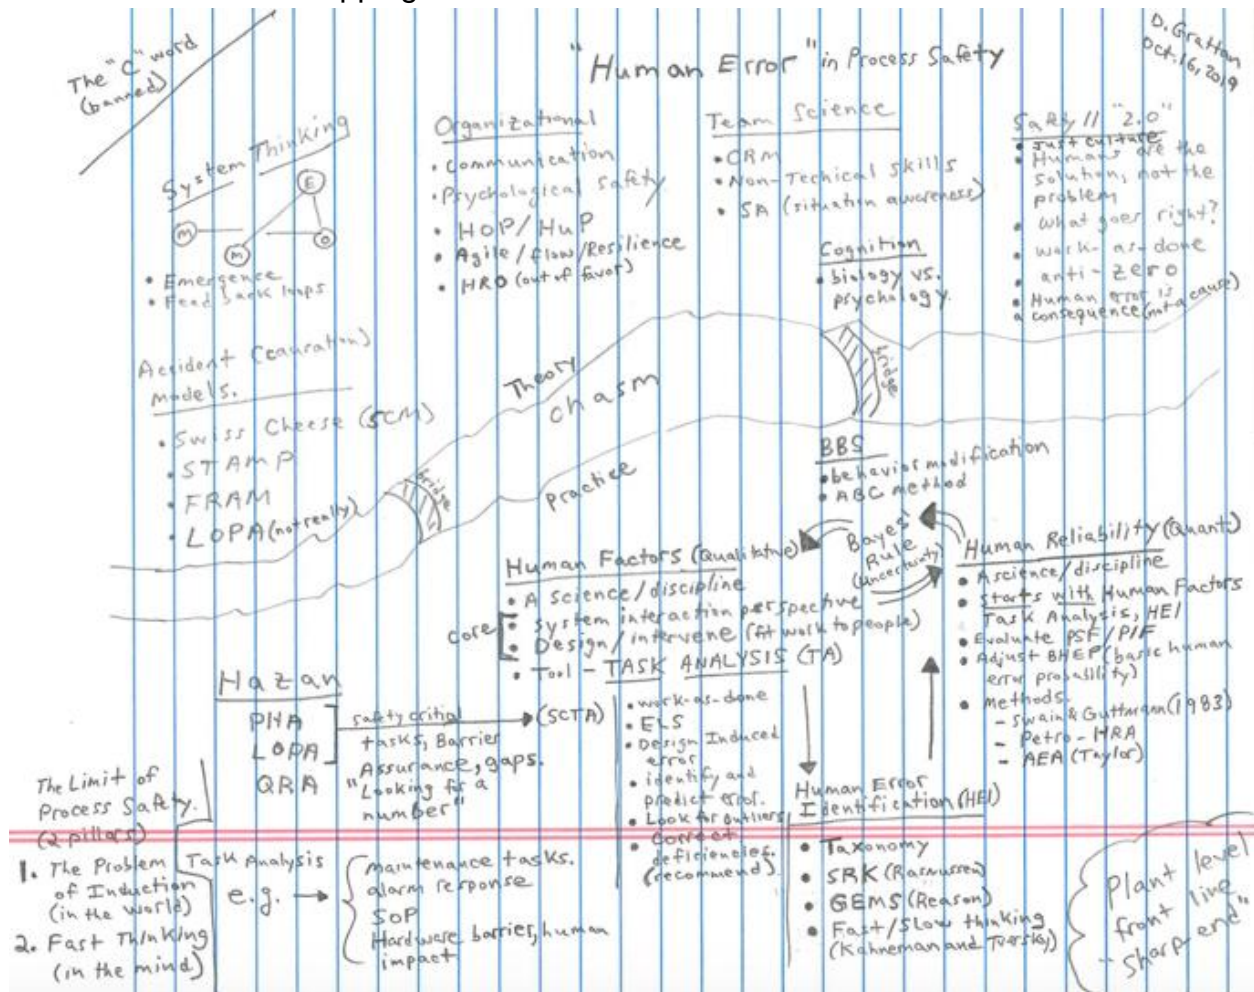 The "C" word
(banned)
"Human Error" in Process Safety
D. Grattan
Oct. 16, 2019
System Thinking
E
M
M
O
• Emergence
• Feed back loops
Organizational
• Communication
• Psychological Safety
• HOP/HuP
• Agile/flow/Resilience
• HRO (out of favor)
Team Science
• CRM
• Non-Techical Skills
• SA (situation awareness)
Cognition
• biology vs.
psychology.
Safety II "2.0"
• Just culture
• Humans are the
solution, not the
problem
• What goes right?
• work-as-done
• anti-zero
• Human error is
a consequence (not a cause)
Accident (causation)
models.
• Swiss Cheese (SCM)
• STAMP
• FRAM
• LOPA (not really)
Theory
chasm
Practice
bridge
bridge
BBS
• behavior modification
• ABC method
Bayes'
Rule
(uncertainty)
Human Factors (Qualitative)
• A science/discipline
Core
• System interaction perspective
• Design/intervene (fit work to people)
• Tool - TASK ANALYSIS (TA)
Human Reliability (Quant)
• A science/discipline
• Starts with Human Factors
Task Analysis, HEI
• Evaluate PSF/PIF
• Adjust BHEP (basic human
error probability)
• Methods.
- Swain & Guttmann (1983)
- Petro-HRA
- AEA (Taylor)
Hazan
PHA
LOPA
QRA
safety critial
tasks, Barrier
Assurance, gaps.
"Looking for a
number"
(SCTA)
• work-as-done
• ELS
• Design Induced
error
• identify and
predict error.
• Look for outliers
• Correct
deficiencies.
(recommend)
Human Error
Identification (HEI)
• Taxonomy
• SRK (Rasmussen)
• GEMS (Reason)
• Fast/Slow thinking
(Kahneman and Tversky)
The Limit of
Process Safety.
(2 pillars)
1. The Problem
of Induction
(in the world)
2. Fast Thinking
(in the mind)
Task Analysis
e.g.
maintenance tasks.
alarm response
SOP
Hardware barrier, human
impact
Plant level
front line
"sharp end"